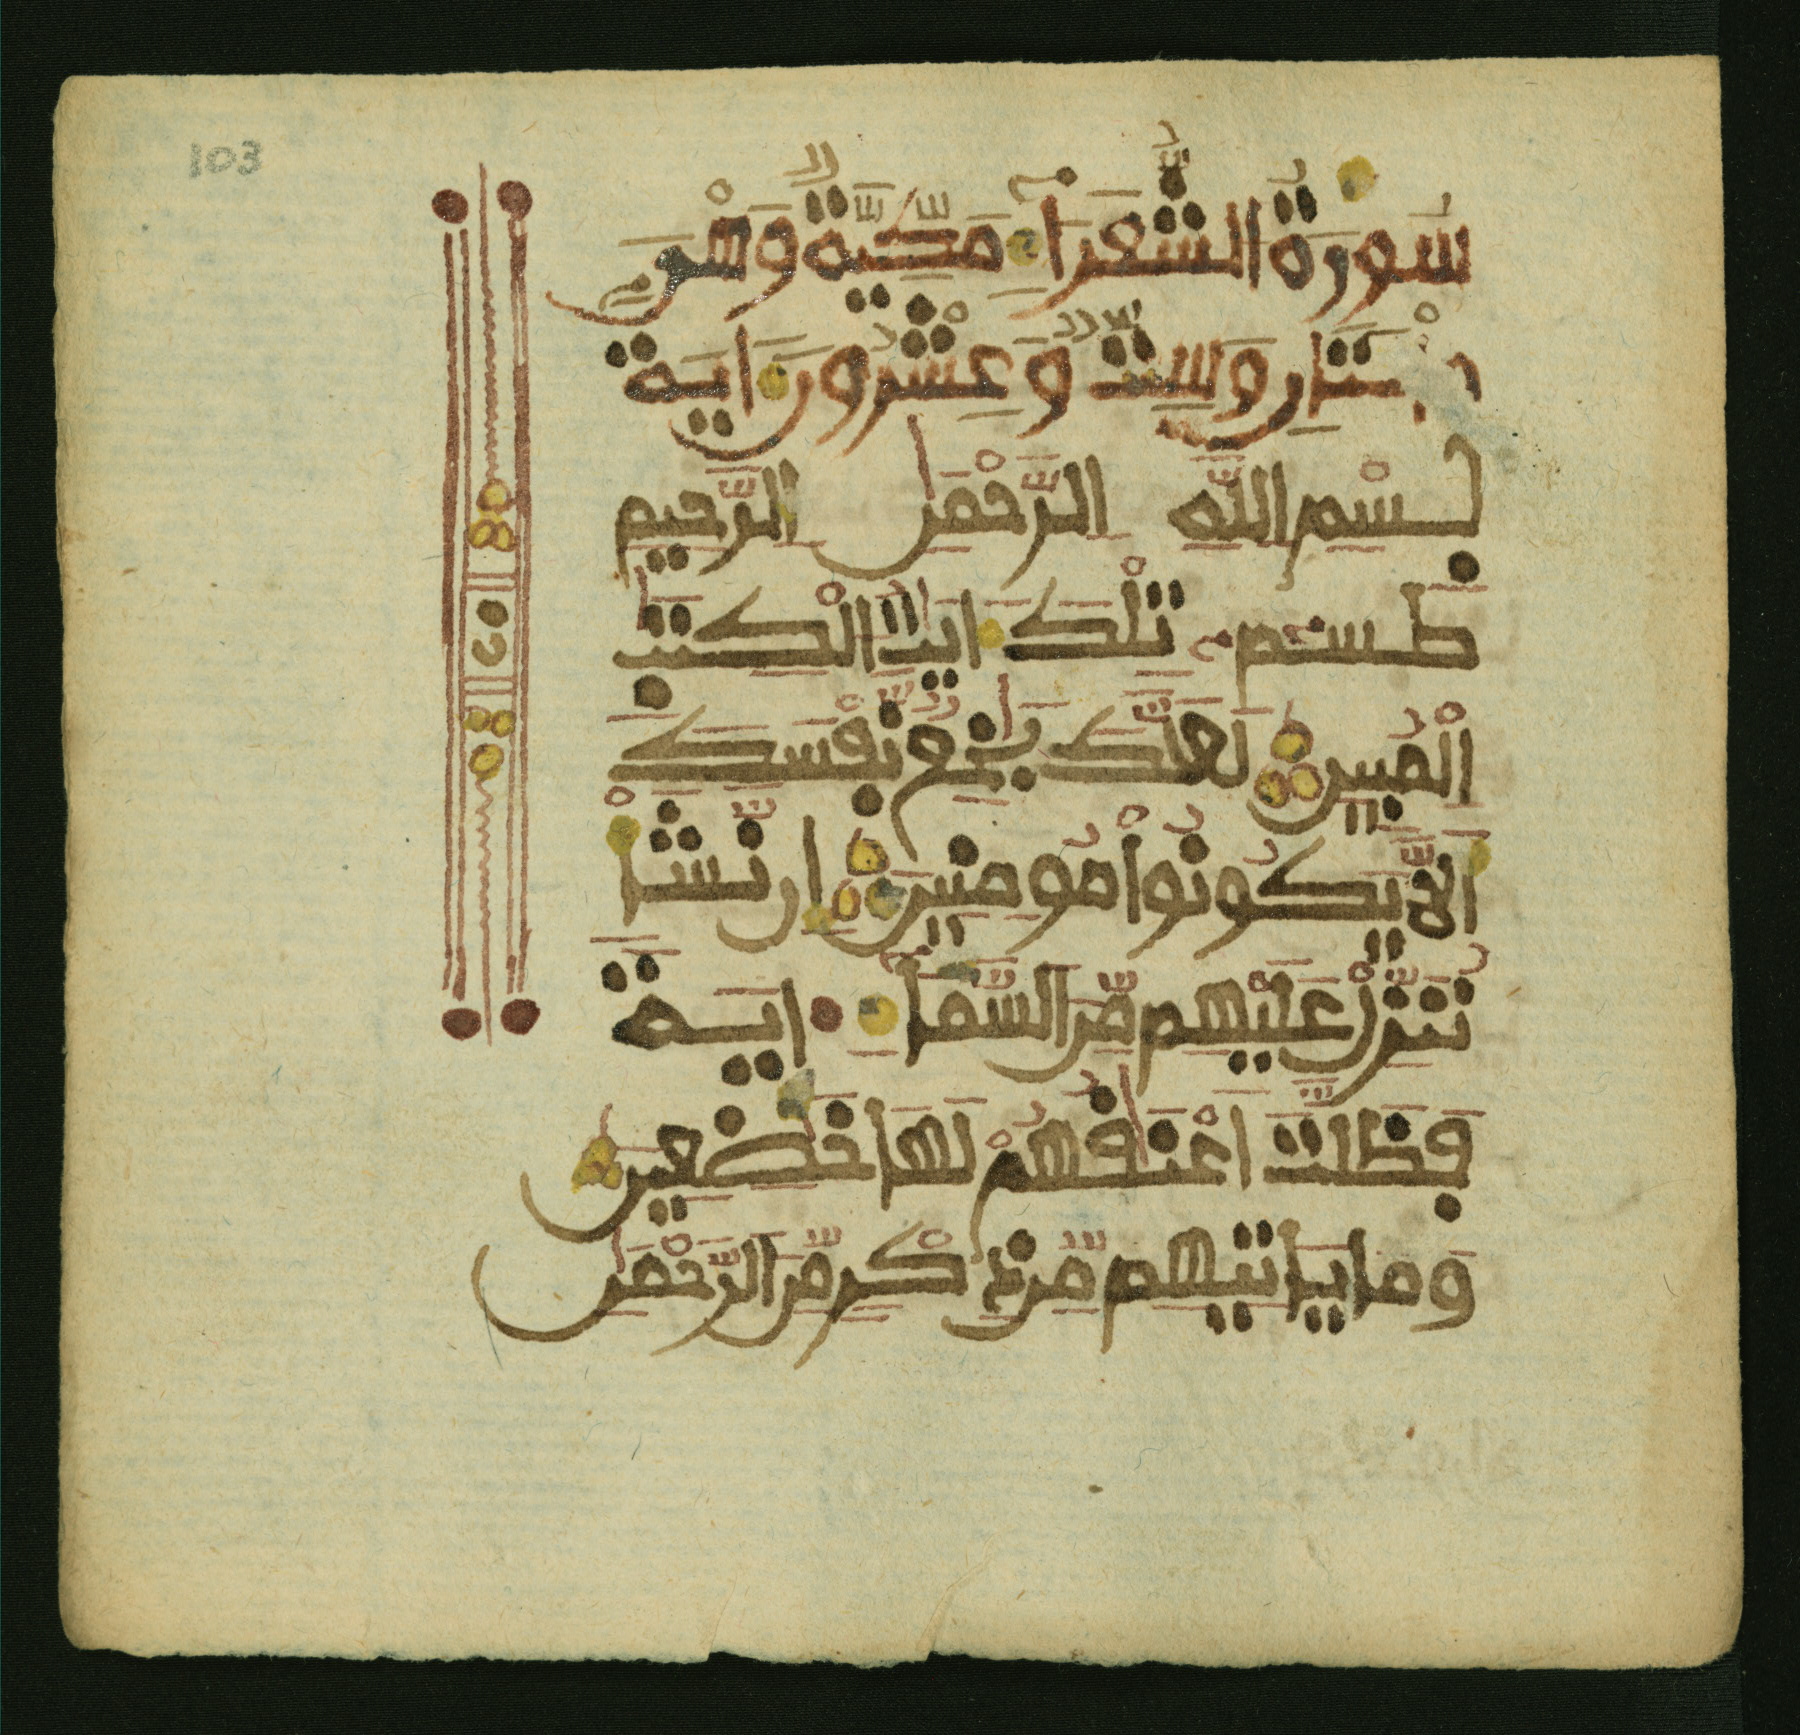 103
سُورَةُ الشُّعَرَآءِ مَكِّيَّةٌ وَهْىَ
مِاْئَتَانِ وَسِتٌّ وَعِشْرُونَ ءَايَةً
بِسْمِ اللَّهِ الرَّحْمَٰنِ الرَّحِيمِ
طَسِٓمِّٓ تِلْكَ ءَايَٰتُ الْكِتَٰبِ
الْمُبِينِ لَعَلَّكَ بَٰخِعٌ نَّفْسَكَ
أَلَّا يَكُونُوا۟ مُومِنِينَ إِن نَّشَأْ
نُنَزِّلْ عَلَيْهِم مِّنَ السَّمَآءِ ءَايَةً
فَظَلَّتَ اَعْنَٰقُهُمْ لَهَا خَٰضِعِينَ
وَمَا يَاتِيهِم مِّن ذِكْرٍ مِّنَ الرَّحْمَٰنِ